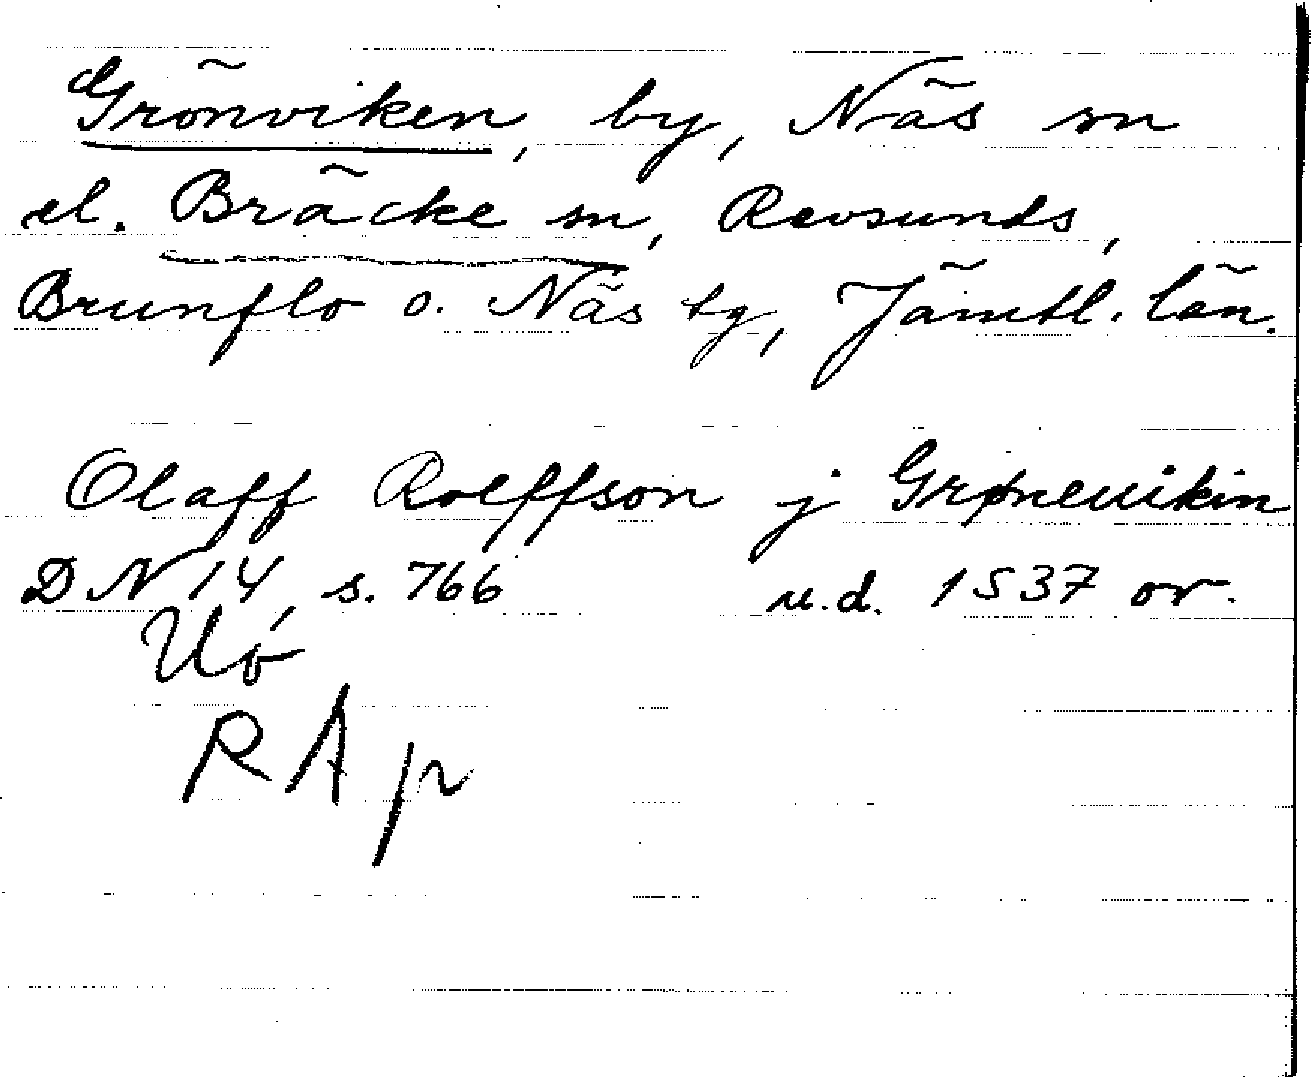 Grönviken, by, Näs sn
el. Bräcke sn, Revsunds,
Brunflo o. Näs tg, Jämtl. län.
Olaff Rolffson j Grøneuikin
DN 14, s. 766 u.d. 1537 or.
RA p